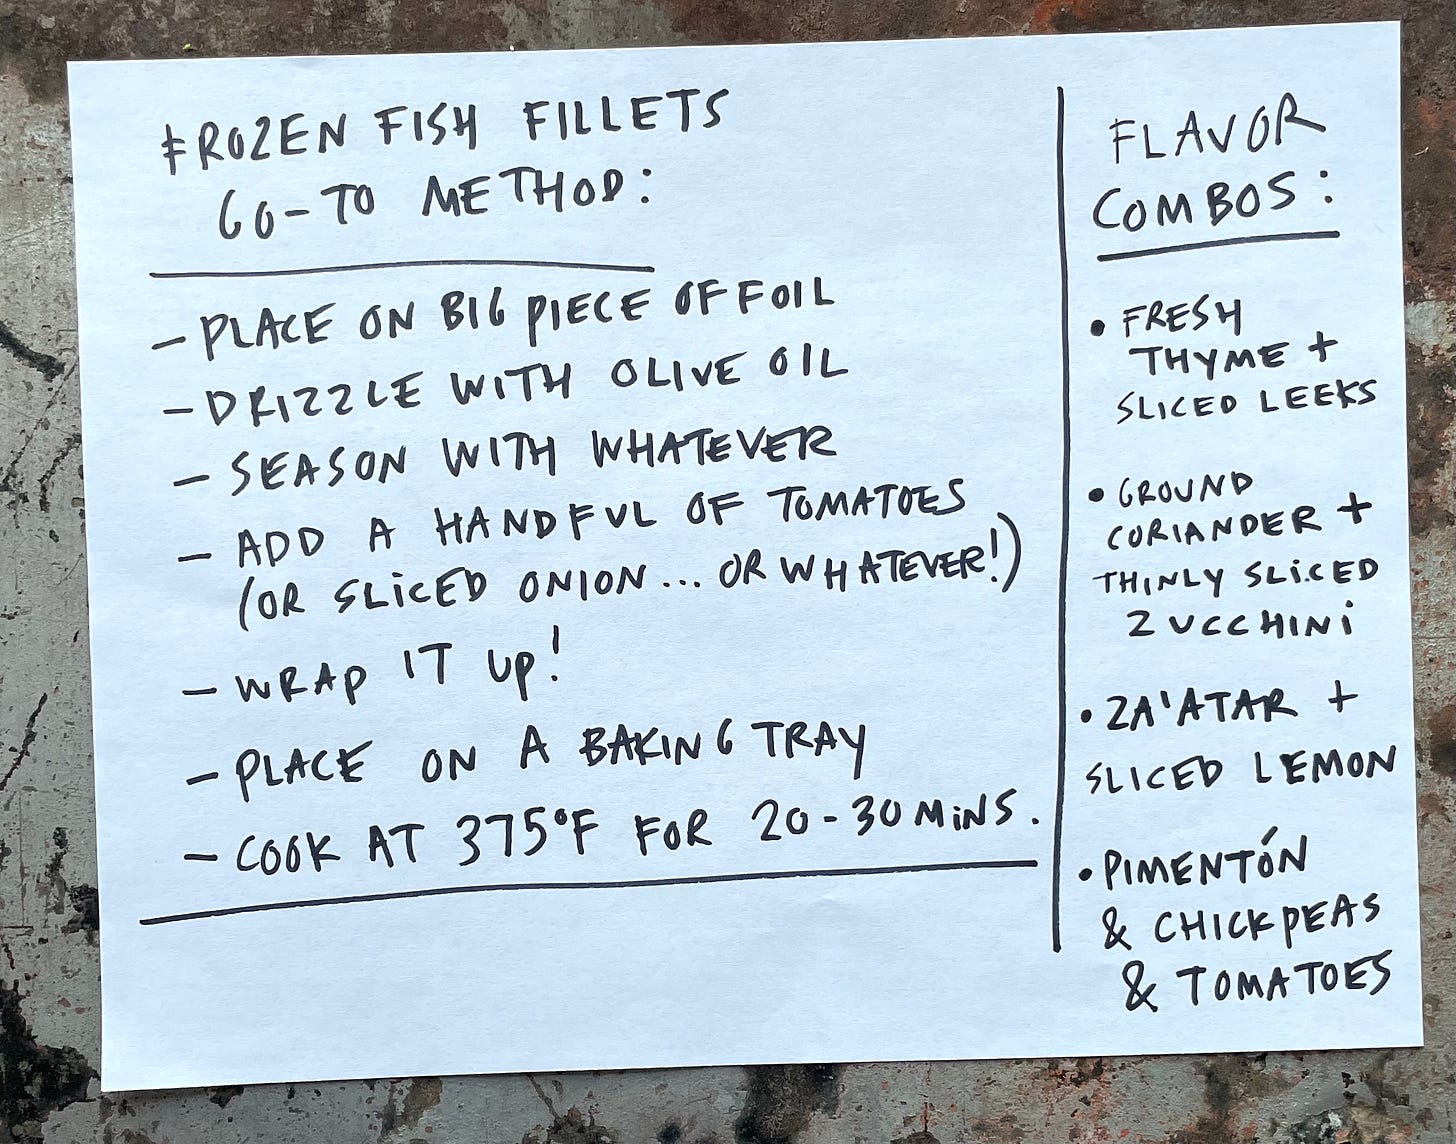 FROZEN FISH FILLETS
GO-TO METHOD:
- PLACE ON BIG PIECE OF FOIL
- DRIZZLE WITH OLIVE OIL
- SEASON WITH WHATEVER
- ADD A HANDFUL OF TOMATOES
(OR SLICED ONION... OR WHATEVER!)
- WRAP IT UP!
- PLACE ON A BAKING TRAY
- COOK AT 375°F FOR 20-30 MINS.
FLAVOR
COMBOS:
• FRESH
THYME +
SLICED LEEKS
• GROUND
CORIANDER +
THINLY SLICED
ZUCCHINI
• ZA'ATAR +
SLICED LEMON
• PIMENTÓN
& CHICKPEAS
& TOMATOES